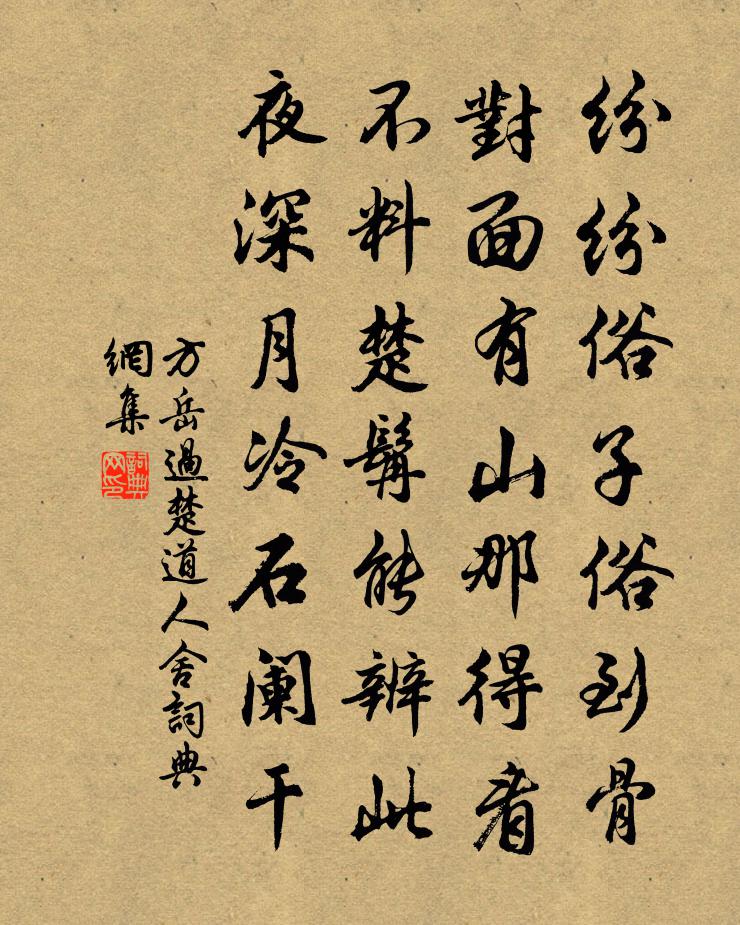 紛紛俗子俗到骨
對面有山那得看
不料楚髯能辨此
夜深月冷石闌干
方岳過楚道人舍詞典
網集
詞典
网印